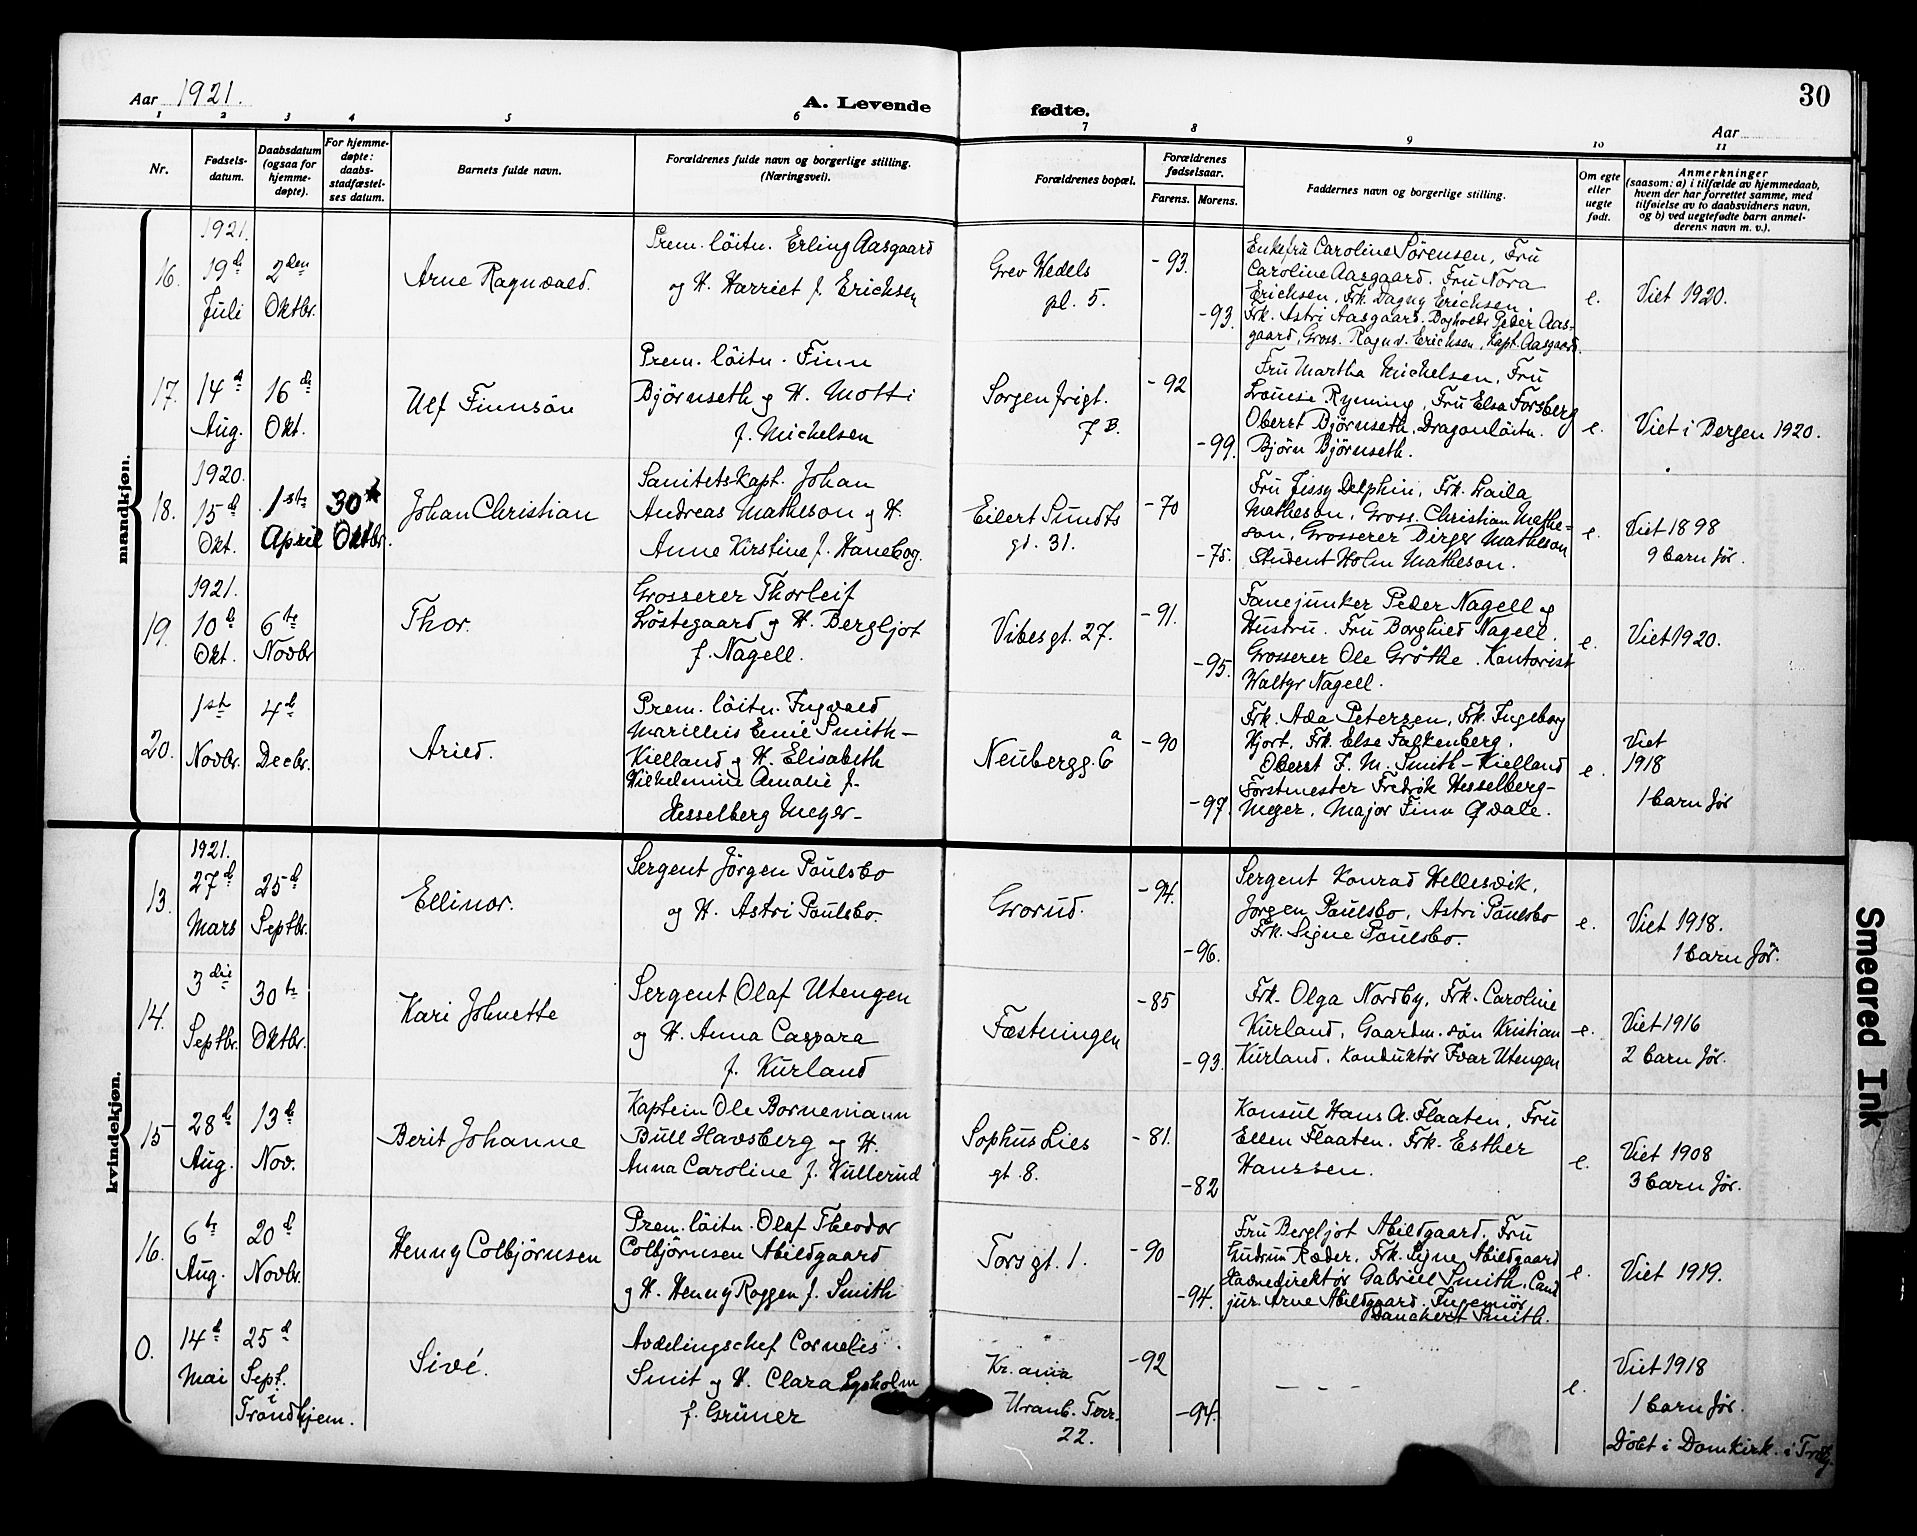 Aar 1921.
A. Levende
fødte.
30
Aar
1 2 3 4 5 6 7 8 9 10 11
Nr.
Fødsels-
datum.
Daabsdatum
(ogsaa for
hjemme-
døpte).
For hjemme-
døpte:
daabs-
stadfæstel-
ses datum.
Barnets fulde navn.
Forældrenes fulde navn og borgerlige stilling.
(Næringsvei).
Forældrenes bopæl.
Forældrenes
fødselsaar.
Farens. Morens.
Faddernes navn og borgerlige stilling.
Om egte
eller
uegte
født.
Anmerkninger
(saasom: a) i tilfælde av hjemmedaab,
hvem der har forrettet samme, med
tilføielse av to daabsvidners navn,
og b) ved uegtefødte barn anmel-
derens navn m. v.).
mandkjøn.
16.
1921.
19d
Juli
2den
Oktbr.
Arne Ragnvald.
Prem. löitn. Erling Aasgaard
og H. Harriet f. Erichsen
Grev Wedels
pl. 5.
-93.
-93.
Enkefru Caroline Sørensen, Fru
Caroline Aasgaard. Fru Nora
Erichsen, Frk. Dagny Erichsen,
Frk. Astri Aasgaard. Bogholdr Peder Aas-
gaard, Gross. Ragnv. Erichsen, Kapt. Aasgaard.
e.
Viet 1920.
17.
14d
Aug.
16d
Okt.
Ulf Finnsön
Prem. löitn. Finn
Björnseth og H. Motti
f. Michelsen
Sorgenfrigt.
7B.
-92
-99.
Fru Martha Michelsen, Fru
Louise Ryming, Fru Elsa Forsberg
Oberst Björnseth, Dragonlöitn.
Björn Björnseth.
e.
Viet i Bergen 1920.
18.
1920.
15d
Okt.
1ste
April
30te
Oktbr.
Johan Christian
Sanitetskapt. Johan
Andreas Matheson og H.
Anne Kirstine f. Haneborg.
Eilert Sundts
gt. 31.
-70
-75.
Fru Jissy Delphin, Frk. Laila
Matheson, Gross. Christian Mathe-
son, Grosserer Birger Matheson
Student Holm Matheson.
e.
Viet 1898
9 barn för.
19.
1921.
10d
Okt.
6te
Novbr
Thor.
Grosserer Thorleif
Löstegaard og H. Bergljot
f. Nagell.
Vibesgt. 27.
-91.
-95.
Fanejunker Peder Nagell og
Hustru. Fru Borghied Nagell.
Grosserer Ole Gröthe. Kontorist
Waltyr Nagell.
e.
Viet 1920.
20.
1ste
Novbr.
4d
Decbr.
Arild.
Prem. löitn. Ingvald
Marillius Emil Smith-
Kielland og H. Elisabeth
Wilhelmine Amalie f.
Hesselberg Meyer-
Neubergg. 6a
-90
-97.
Frk. Ada Petersen, Frk. Ingeborg
Hjort. Frk. Else Falkenberg.
Oberst F. M. Smith-Kielland
Forstmester Fredrik Hesselberg-
Meyer, Major Finn Qvale.
e.
Viet
1918
1 barn för
kvindekjøn.
13.
1921.
27d
Mars
25d
Septbr.
Ellinor.
Sergent Jörgen Poulsbo
og H. Astri Poulsbo.
Grorud.
-94.
-96.
Sergent Konrad Hellesvik,
Jörgen Poulsbo, Astri Poulsbo
Frk. Signe Poulsbo.
e.
Viet 1918.
1 barn för.
14.
3die
Septbr.
30te
Oktbr.
Kari Johnette
Sergent Olaf Utengen
og H. Anna Caspara
f. Kurland
Fæstningen
-85
-93.
Frk. Olga Nordby, Frk. Caroline
Kurland, Gaardm. sön Kristian
Kurland, Konduktör Ivar Utengen
e.
Viet 1916
2 barn för.
15
28d
Aug.
13d
Nov.
Berit Johanne
Kaptein Ole Bornemann
Bull Havsberg og H.
Anna Caroline f. Kullerud
Sophus Lies
gt. 8.
-81.
-82
Konsul Hans A. Flaaten, Fru
Ellen Flaaten. Frk. Esther
Hanssen.
e.
Viet 1908
3 barn för.
16.
6te
Aug.
20d
Novbr.
Henny Colbjörnsen
Prem. löitn. Olaf Theodor
Colbjörnsen Abildgaard
og H. Henny Roggen f. Smith
Torsgt. 1.
-90
-94.
Fru Bergljot Abildgaard, Fru
Gudrun Ræder. Frk. Signe Abildgaard
Havnedirektör Gabriel Smith, Cand
jur. Arne Abildgaard. Ingeniör
Banckert Smith.
e.
Viet 1919.
0.
14d
Mai
25d
Sept.
i
Trondhjem.
Sivé.
Avdelingschef Cornelis
Smit og H. Clara Lysholm
f. Grüner
Kr.ania
Uranb. Torr.
22.
-92
-94.
- - -
e.
Viet 1918
1 barn för.
Döbt i Domkirk. i Trhj.
Smeared Ink